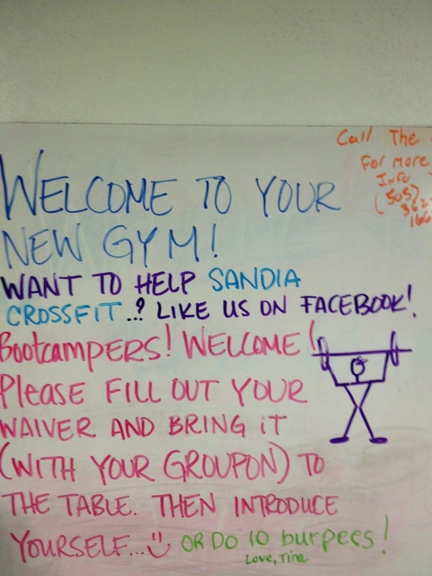 Call The
For More
Info
(505)
WELCOME TO YOUR
NEW GYM!
WANT TO HELP SANDIA
CROSSFIT..? LIKE US ON FACEBOOK!
Bootcampers! WELCOME!
PLEASE FILL OUT YOUR
WAIVER AND BRING IT
(WITH YOUR GROUPON) TO
THE TABLE. THEN INTRODUCE
YOURSELF... OR DO 10 burpees!
Love, Tina